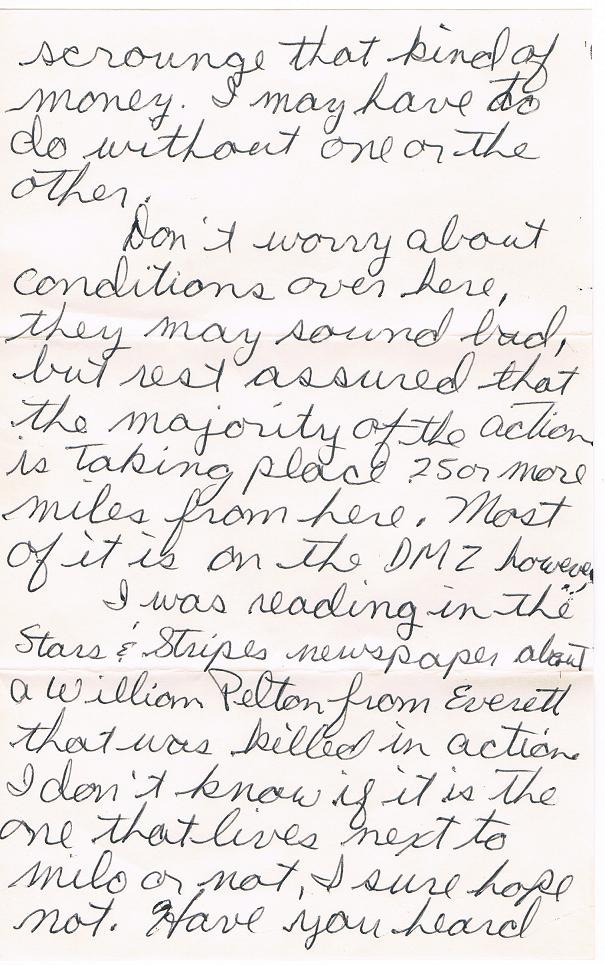 scrounge that kind of
money. I may have to
do without one or the
other.
Don't worry about
conditions over here,
they may sound bad,
but rest assured that
the majority of the action
is taking place 25 or more
miles from here. Most
of it is on the DMZ however,
I was reading in the
Stars & Stripes newspaper about
a William Pelton from Everett
that was killed in action
I don't know if it is the
one that lives next to
milo or not, I sure hope
not. Have you heard